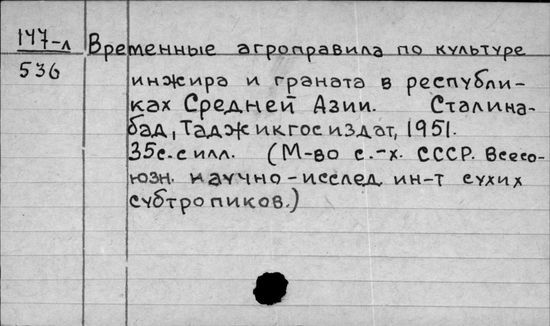 147-л Временные агроправила по культуре
536
инжира и граната в республи-
ках Средней Азии. Сталина-
бад, Таджикгосиздат, 1951.
35с. с илл. (М-во с.-х. СССР. Всесо-
юзн. научно-исслед. ин-т сухих
субтропиков.)